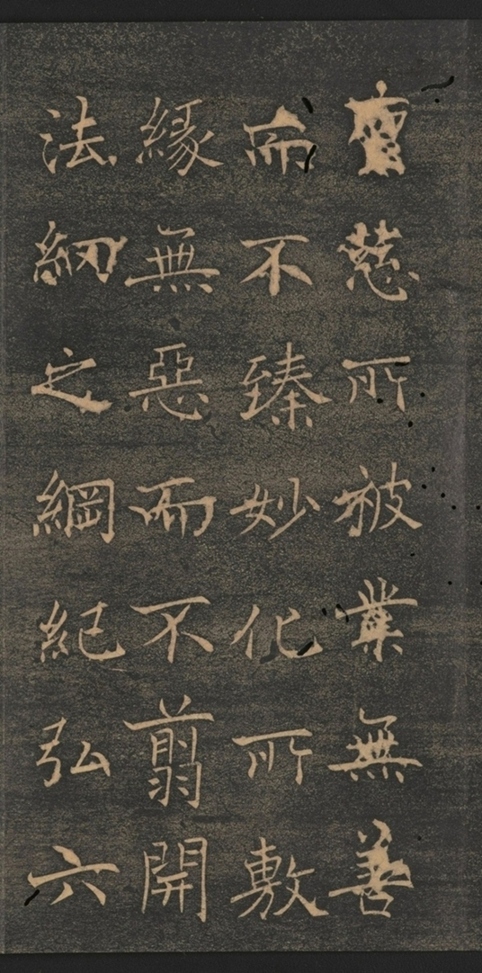 聖慈所被業無善
而不臻妙化所敷
緣無惡而不翦開
法網之綱紀弘六